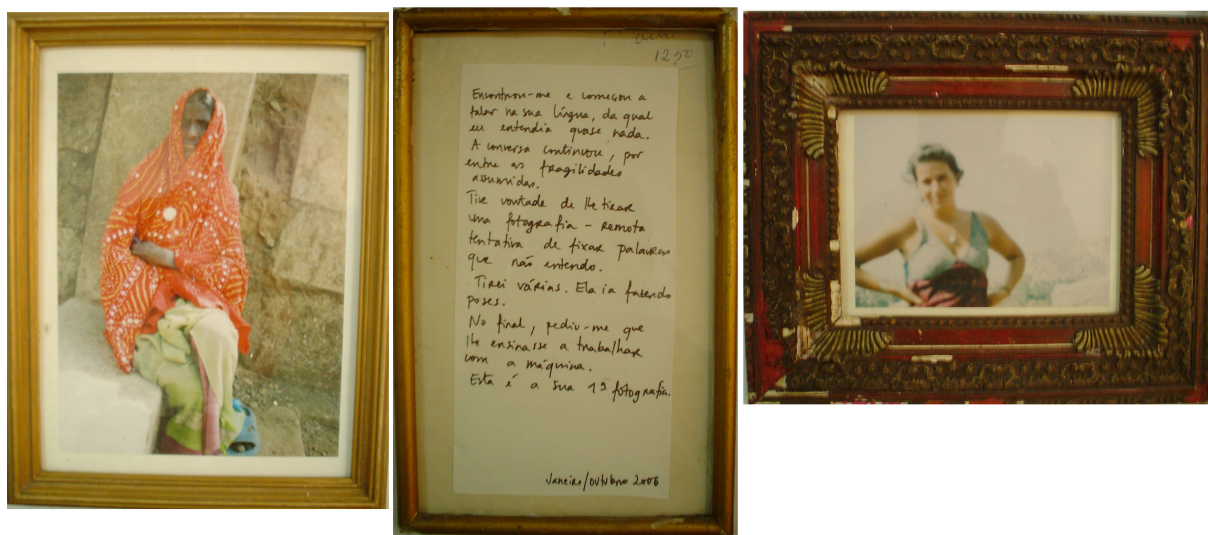 12,50
Encontrou-me e começou a
falar na sua língua, da qual
eu entendia quase nada.
A conversa continuou, por
entre as fragilidades
assumidas.
Tive vontade de lhe tirar
uma fotografia - remota
tentativa de fixar palavras
que não entendo.
Tirei várias. Ela ia fazendo
poses.
No final, pediu-me que
lhe ensinasse a trabalhar
com a máquina.
Esta é a sua 1ª fotografia.
Janeiro/outubro 2006